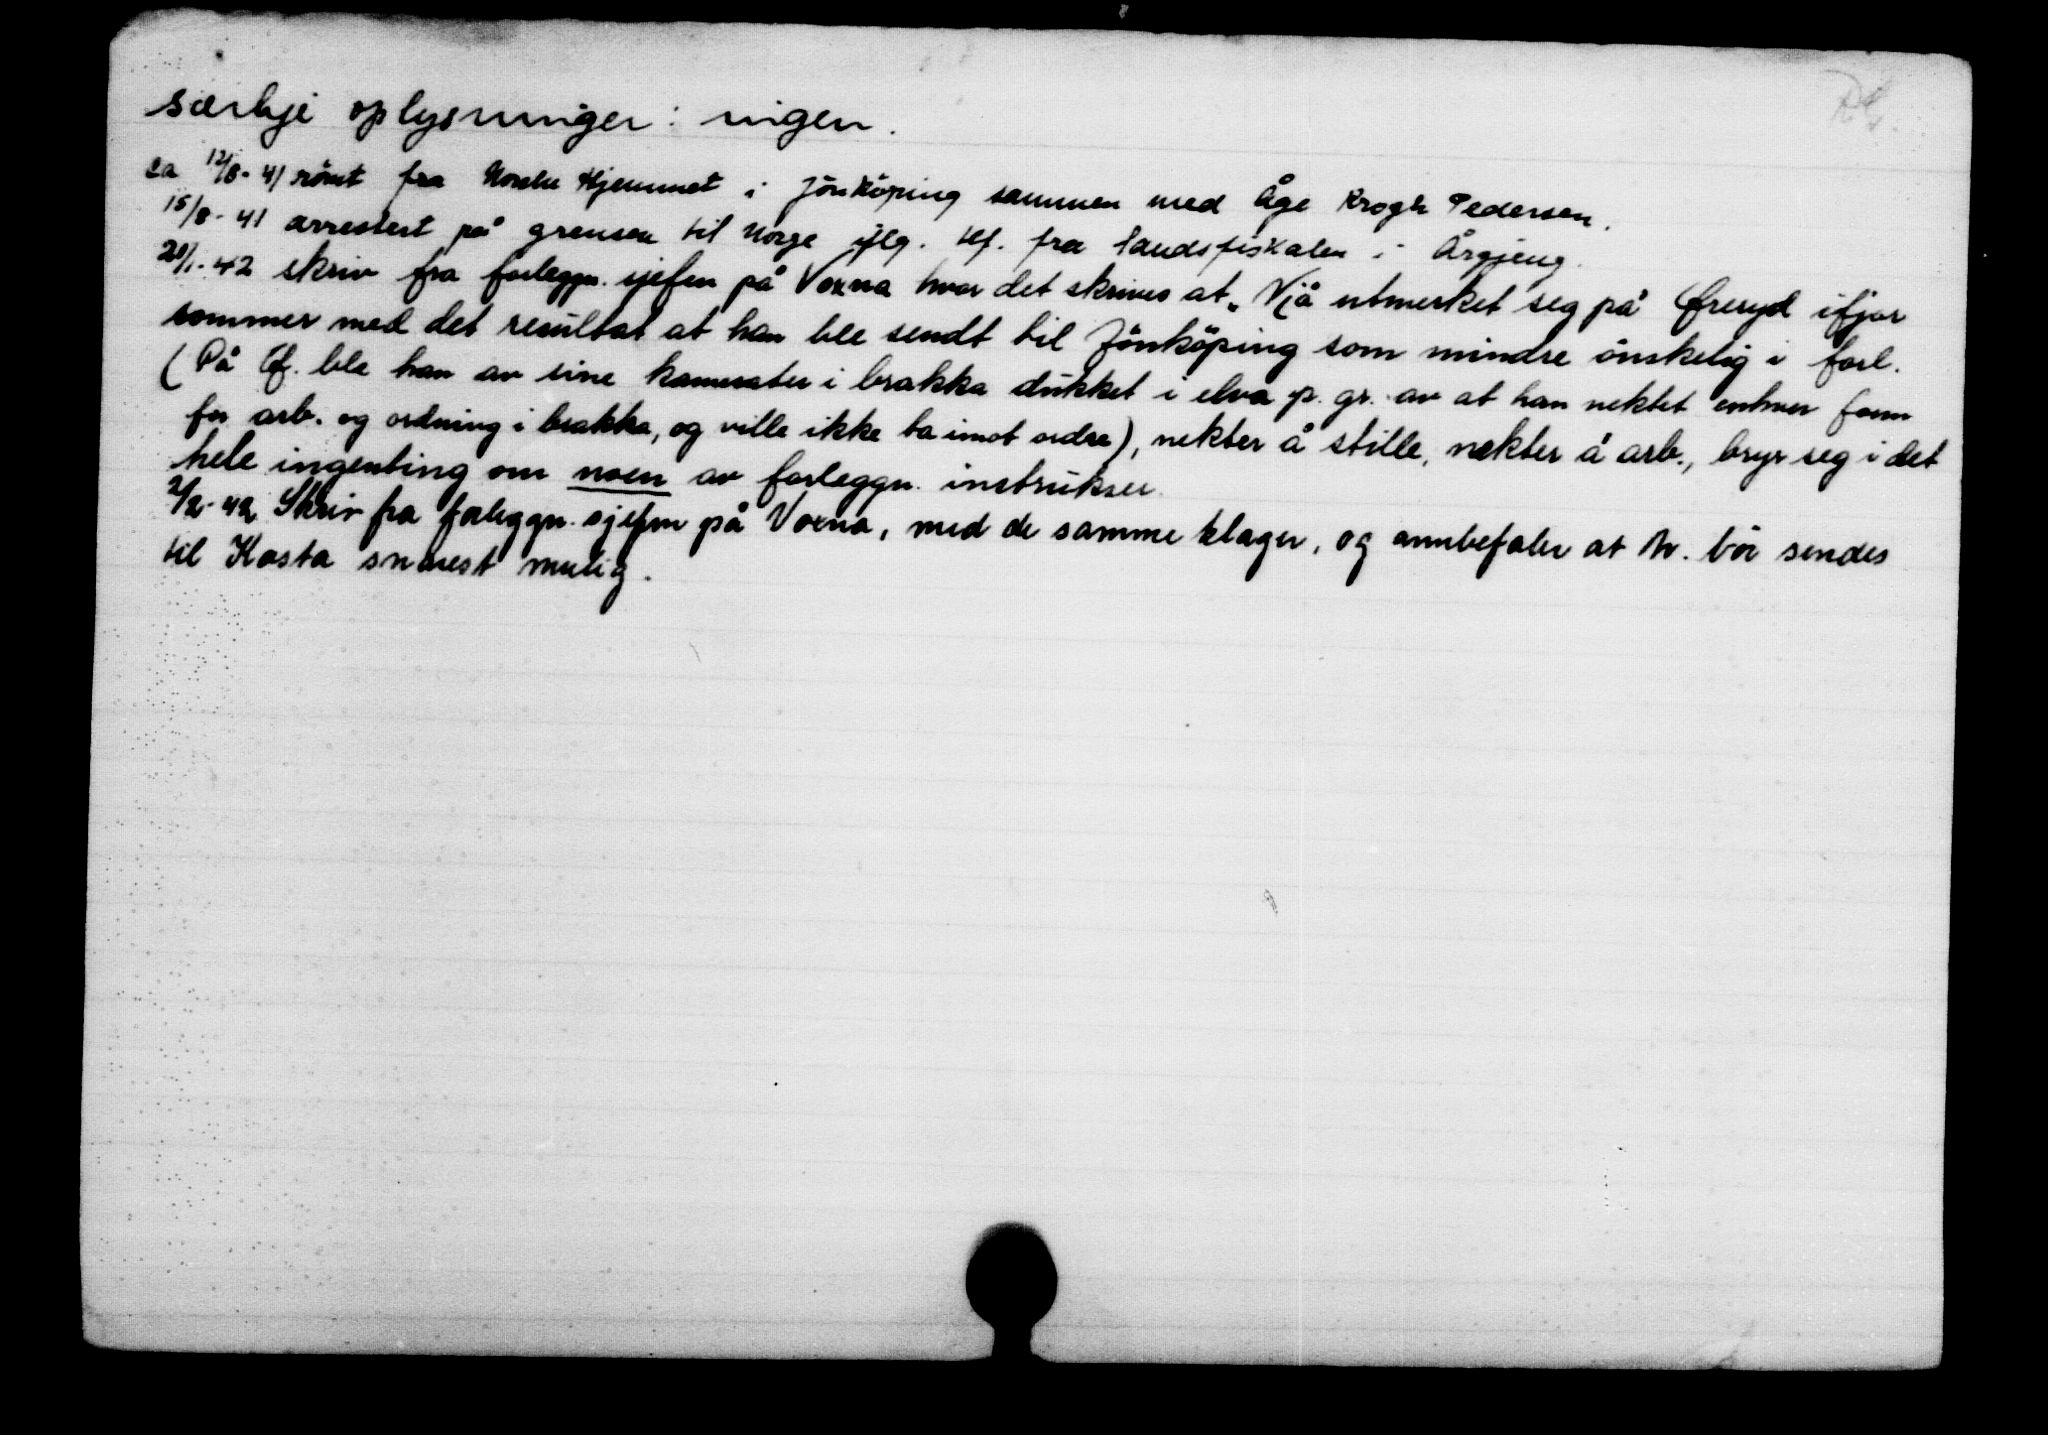 særlige oplysninger: ingen.
ca 12/8-41 römt fra Norske Hjemmet i Jönköping sammen med Åge Krogh Pedersen.
15/8-41 arrestert på grensen til Norge iflg. tlf. fra landsfiskalen i Årgjeng.
28/1-42 skriv fra forleggn. sjefen på Voxna hvor det skrives at „ utmerket seg på Öreryd ifjor
sommer med det resultat at han ble sendt til Jönköping som mindre önskelig i forl.
(På Öf. ble han av sine kamerater i brakka dukket i elva p. gr. av at han nektet enhver form
for arb. og ordning i brakka, og ville ikke ta imot ordre), nekter å stille, nekter å arb., bryr seg i det
hele ingenting om noen av forleggn. instrukser.
2/2-42 Skriv fra forleggn. sjefen på Voxna, med de samme klager, og annbefaler at N. bör sendes
til Kosta snarest mulig.